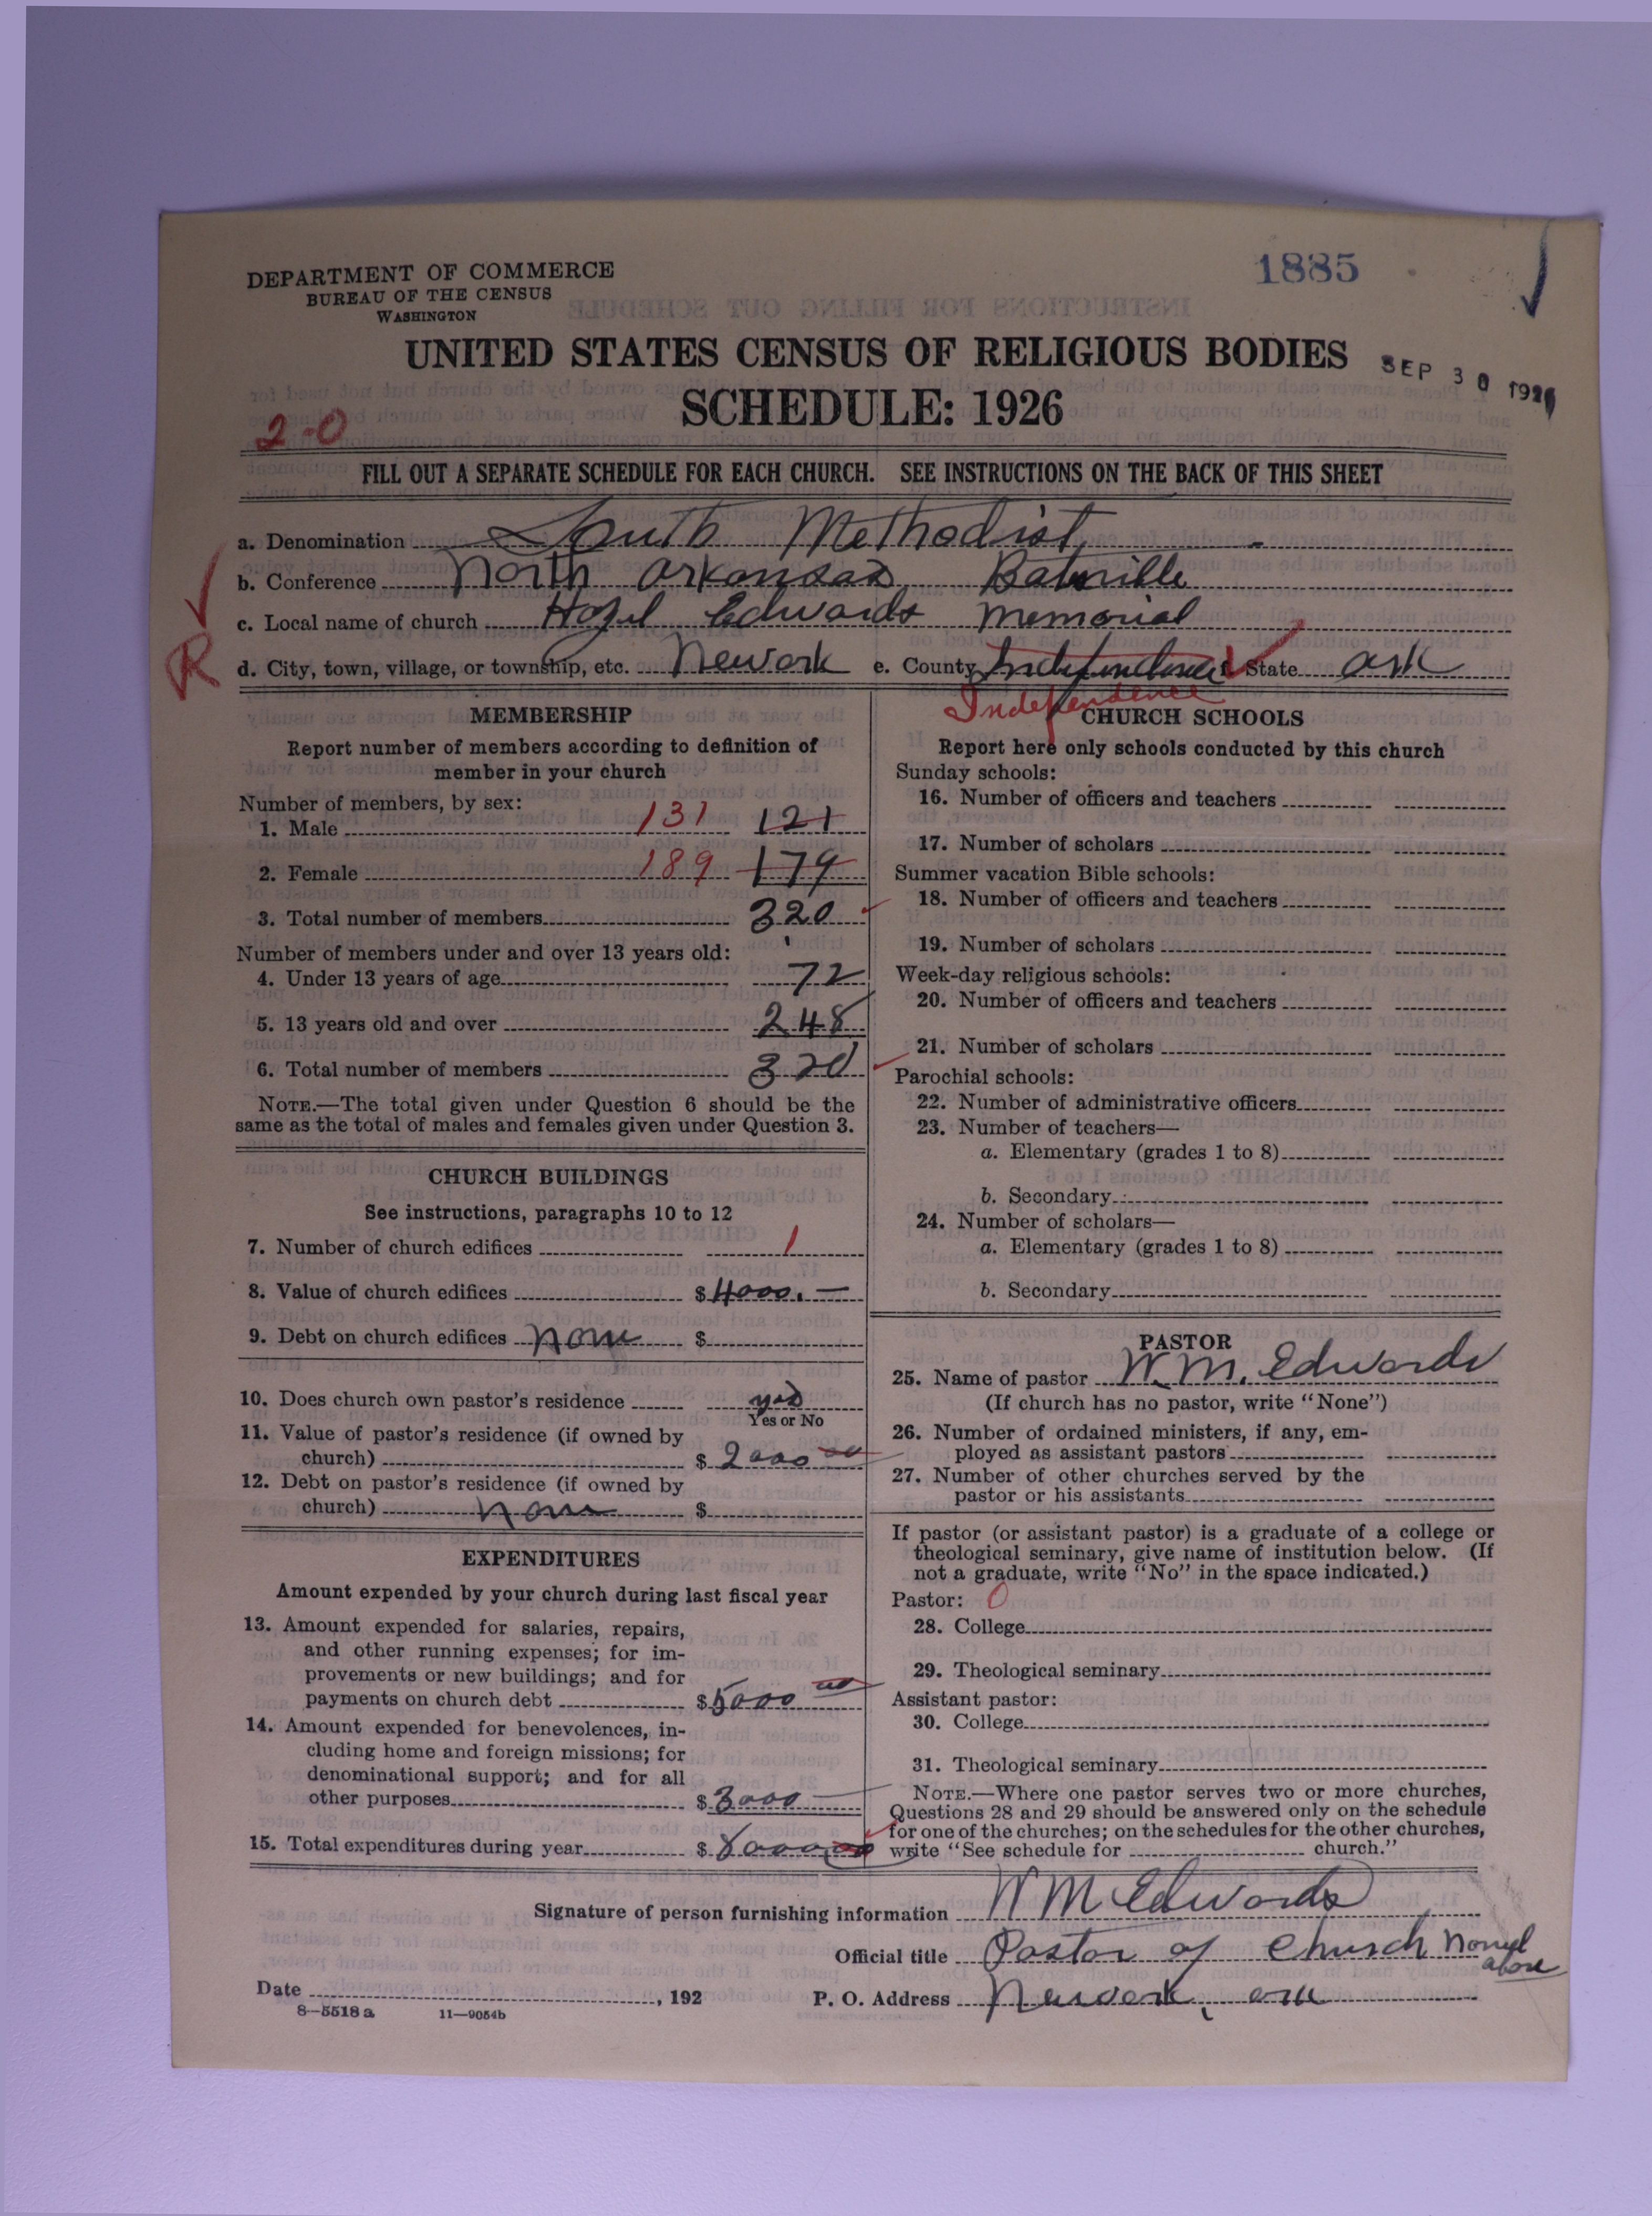 1885
DEPARTMENT OF COMMERCE
BUREAU OF THE CENSUS
WASHINGTON
UNITED STATES CENSUS OF RELIGIOUS BODIES
SEP 30 1926
SCHEDULE: 1926
2-0
FILL OUT A SEPARATE SCHEDULE FOR EACH CHURCH. SEE INSTRUCTIONS ON THE BACK OF THIS SHEET
a. Denomination South Methodist
b. Conference North Arkansas Batesville
c. Local name of church Hazel Edwards Memorial
R
d. City, town, village, or township, etc. Newark e. County Independence f. State Ark
Independence
MEMBERSHIP
Report number of members according to definition of
member in your church
Number of members, by sex:
1. Male 131 121
2. Female 189 179
3. Total number of members 320
Number of members under and over 13 years old:
4. Under 13 years of age 72
5. 13 years old and over 248
6. Total number of members 320
NOTE.—The total given under Question 6 should be the
same as the total of males and females given under Question 3.
CHURCH BUILDINGS
See instructions, paragraphs 10 to 12
7. Number of church edifices 1
8. Value of church edifices $4000.—
9. Debt on church edifices None $
10. Does church own pastor's residence yes
Yes or No
11. Value of pastor's residence (if owned by
church) $2000 00
12. Debt on pastor's residence (if owned by
church) None $
EXPENDITURES
Amount expended by your church during last fiscal year
13. Amount expended for salaries, repairs,
and other running expenses; for im-
provements or new buildings; and for
payments on church debt $5000 00
14. Amount expended for benevolences, in-
cluding home and foreign missions; for
denominational support; and for all
other purposes $3000
15. Total expenditures during year $8000.00
CHURCH SCHOOLS
Report here only schools conducted by this church
Sunday schools:
16. Number of officers and teachers
17. Number of scholars
Summer vacation Bible schools:
18. Number of officers and teachers
19. Number of scholars
Week-day religious schools:
20. Number of officers and teachers
21. Number of scholars
Parochial schools:
22. Number of administrative officers
23. Number of teachers—
a. Elementary (grades 1 to 8)
b. Secondary
24. Number of scholars—
a. Elementary (grades 1 to 8)
b. Secondary
PASTOR
25. Name of pastor W. M. Edwards
(If church has no pastor, write "None")
26. Number of ordained ministers, if any, em-
ployed as assistant pastors
27. Number of other churches served by the
pastor or his assistants
If pastor (or assistant pastor) is a graduate of a college or
theological seminary, give name of institution below. (If
not a graduate, write "No" in the space indicated.)
Pastor: 0
28. College
29. Theological seminary
Assistant pastor:
30. College
31. Theological seminary
NOTE.—Where one pastor serves two or more churches,
Questions 28 and 29 should be answered only on the schedule
for one of the churches; on the schedules for the other churches,
write "See schedule for church."
Signature of person furnishing information W M Edwards
Official title Pastor of Church Named
above
Date , 192 P. O. Address Newark, Ark
8—5518 a 11—9054b